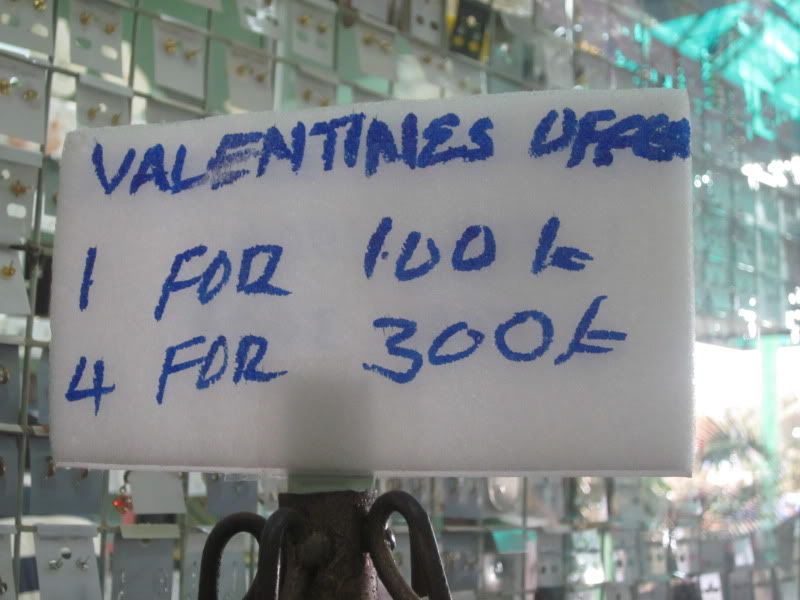 VALENTINES OFFER
1 FOR 100/=
4 FOR 300/=